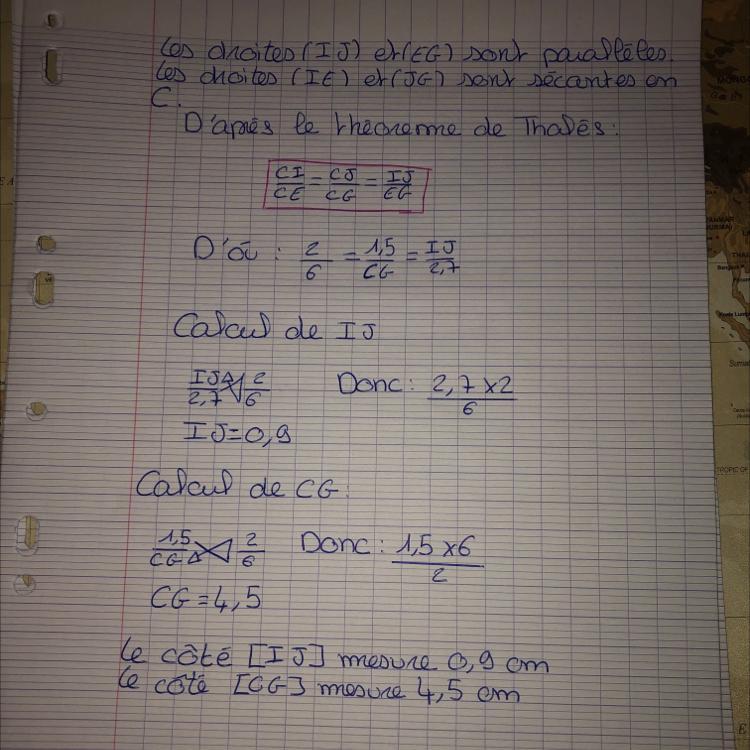 Les droites (IJ) et (EG) sont parallèles.
Les droites (IE) et (JG) sont sécantes en
C.
D'après le théoreme de Thalès:
CI/CE = CJ/CG = IJ/EG
D'où : 2/6 = 1,5/CG = IJ/2,7
Calcul de IJ
IJ/2,7 2/6 Donc: 2,7 x2/6
IJ=0,9
Calcul de CG:
1,5/CG 2/6 Donc: 1,5 x6/2
CG =4,5
Le côté [IJ] mesure 0,9 cm
Le côté [CG] mesure 4,5 cm